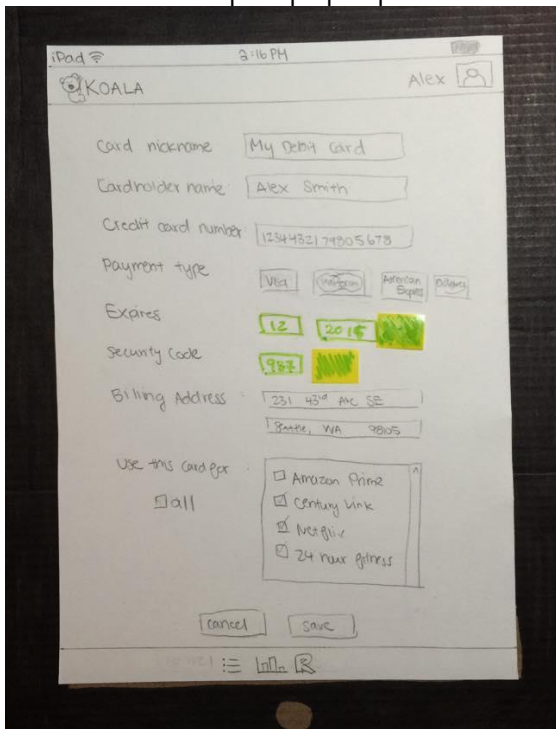 iPad 3:16 PM
KOALA Alex
Card nickname My Debit Card
Cardholder name Alex Smith
Credit card number
Payment type Visa American Express
Expires 12
Security Code 937
Billing Address 231 43rd Ave SE
Seattle, WA 98105
Use this card for
all
Amazon Prime
Century Link
Netflix
24 hour fitness
cancel save